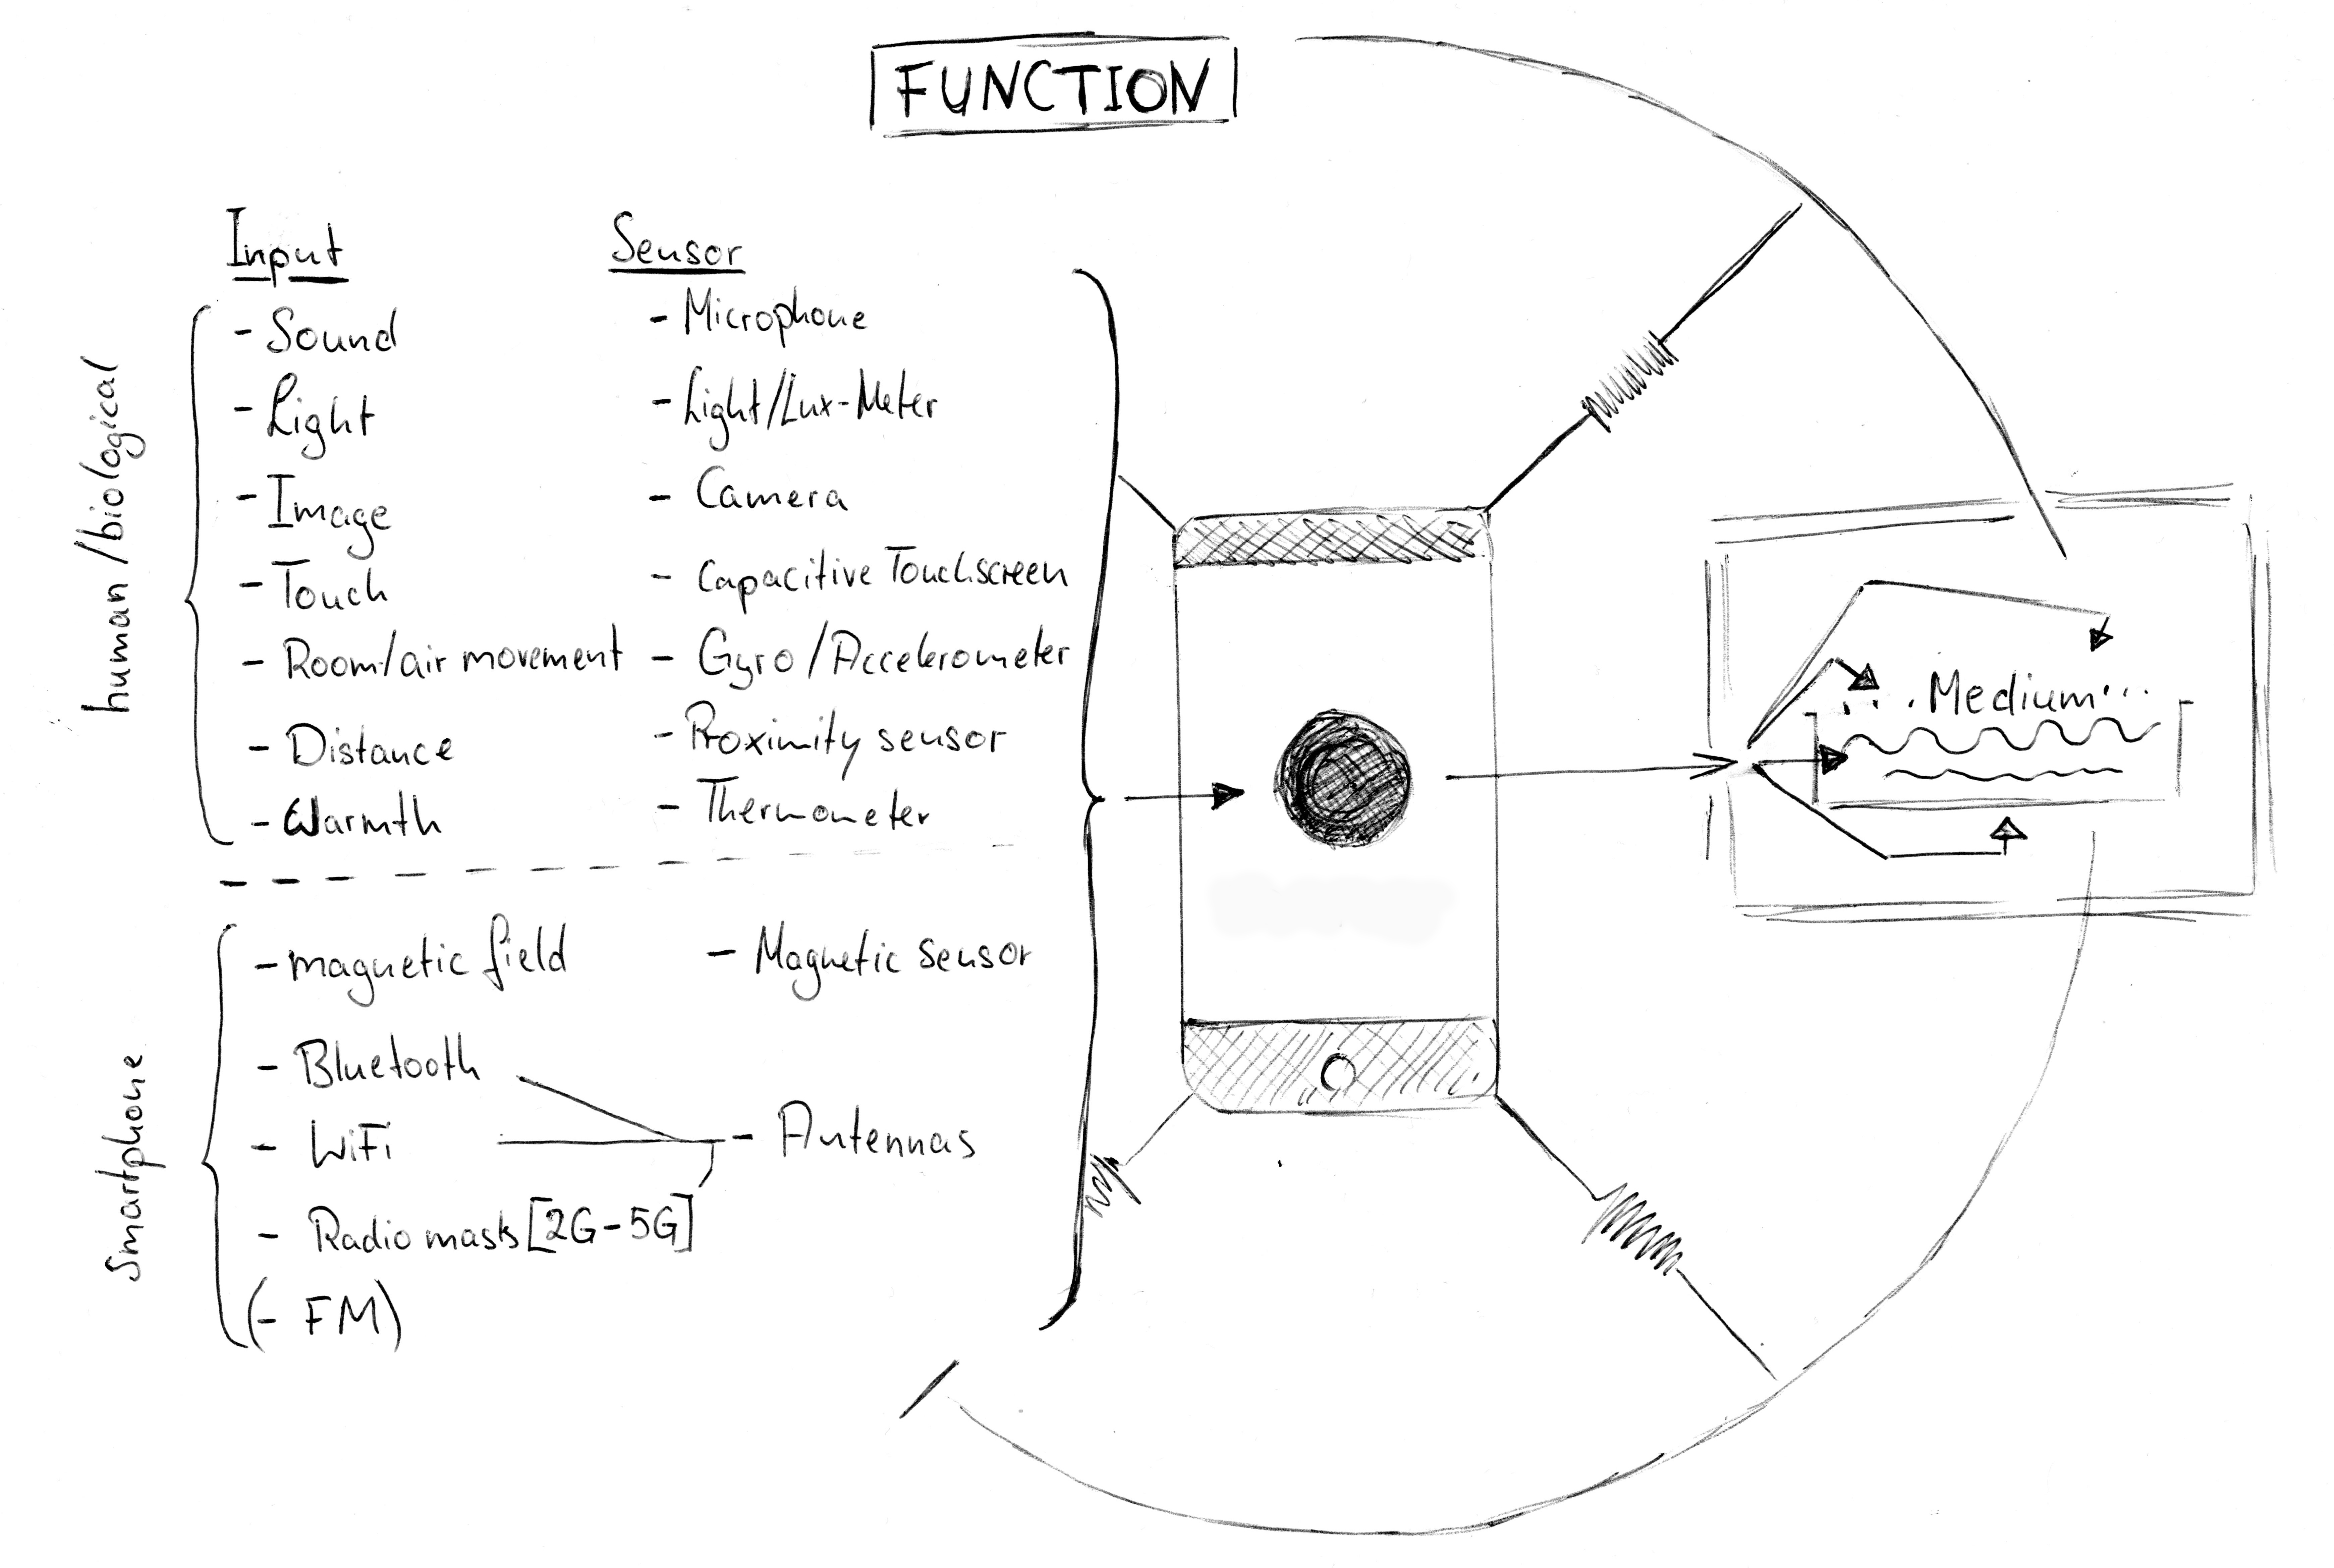 FUNCTION
Input
Sensor
human/biological
- Sound
- Microphone
- Light
- Light/Lux-Meter
- Image
- Camera
- Touch
- Capacitive Touchscreen
- Room/air movement
- Gyro/Accelerometer
- Distance
- Proximity sensor
- Warmth
- Thermometer
smartphone
- magnetic field
- Magnetic sensor
- Bluetooth
- WiFi
- Antennas
- Radio masts [2G-5G]
(- FM)
... Medium...